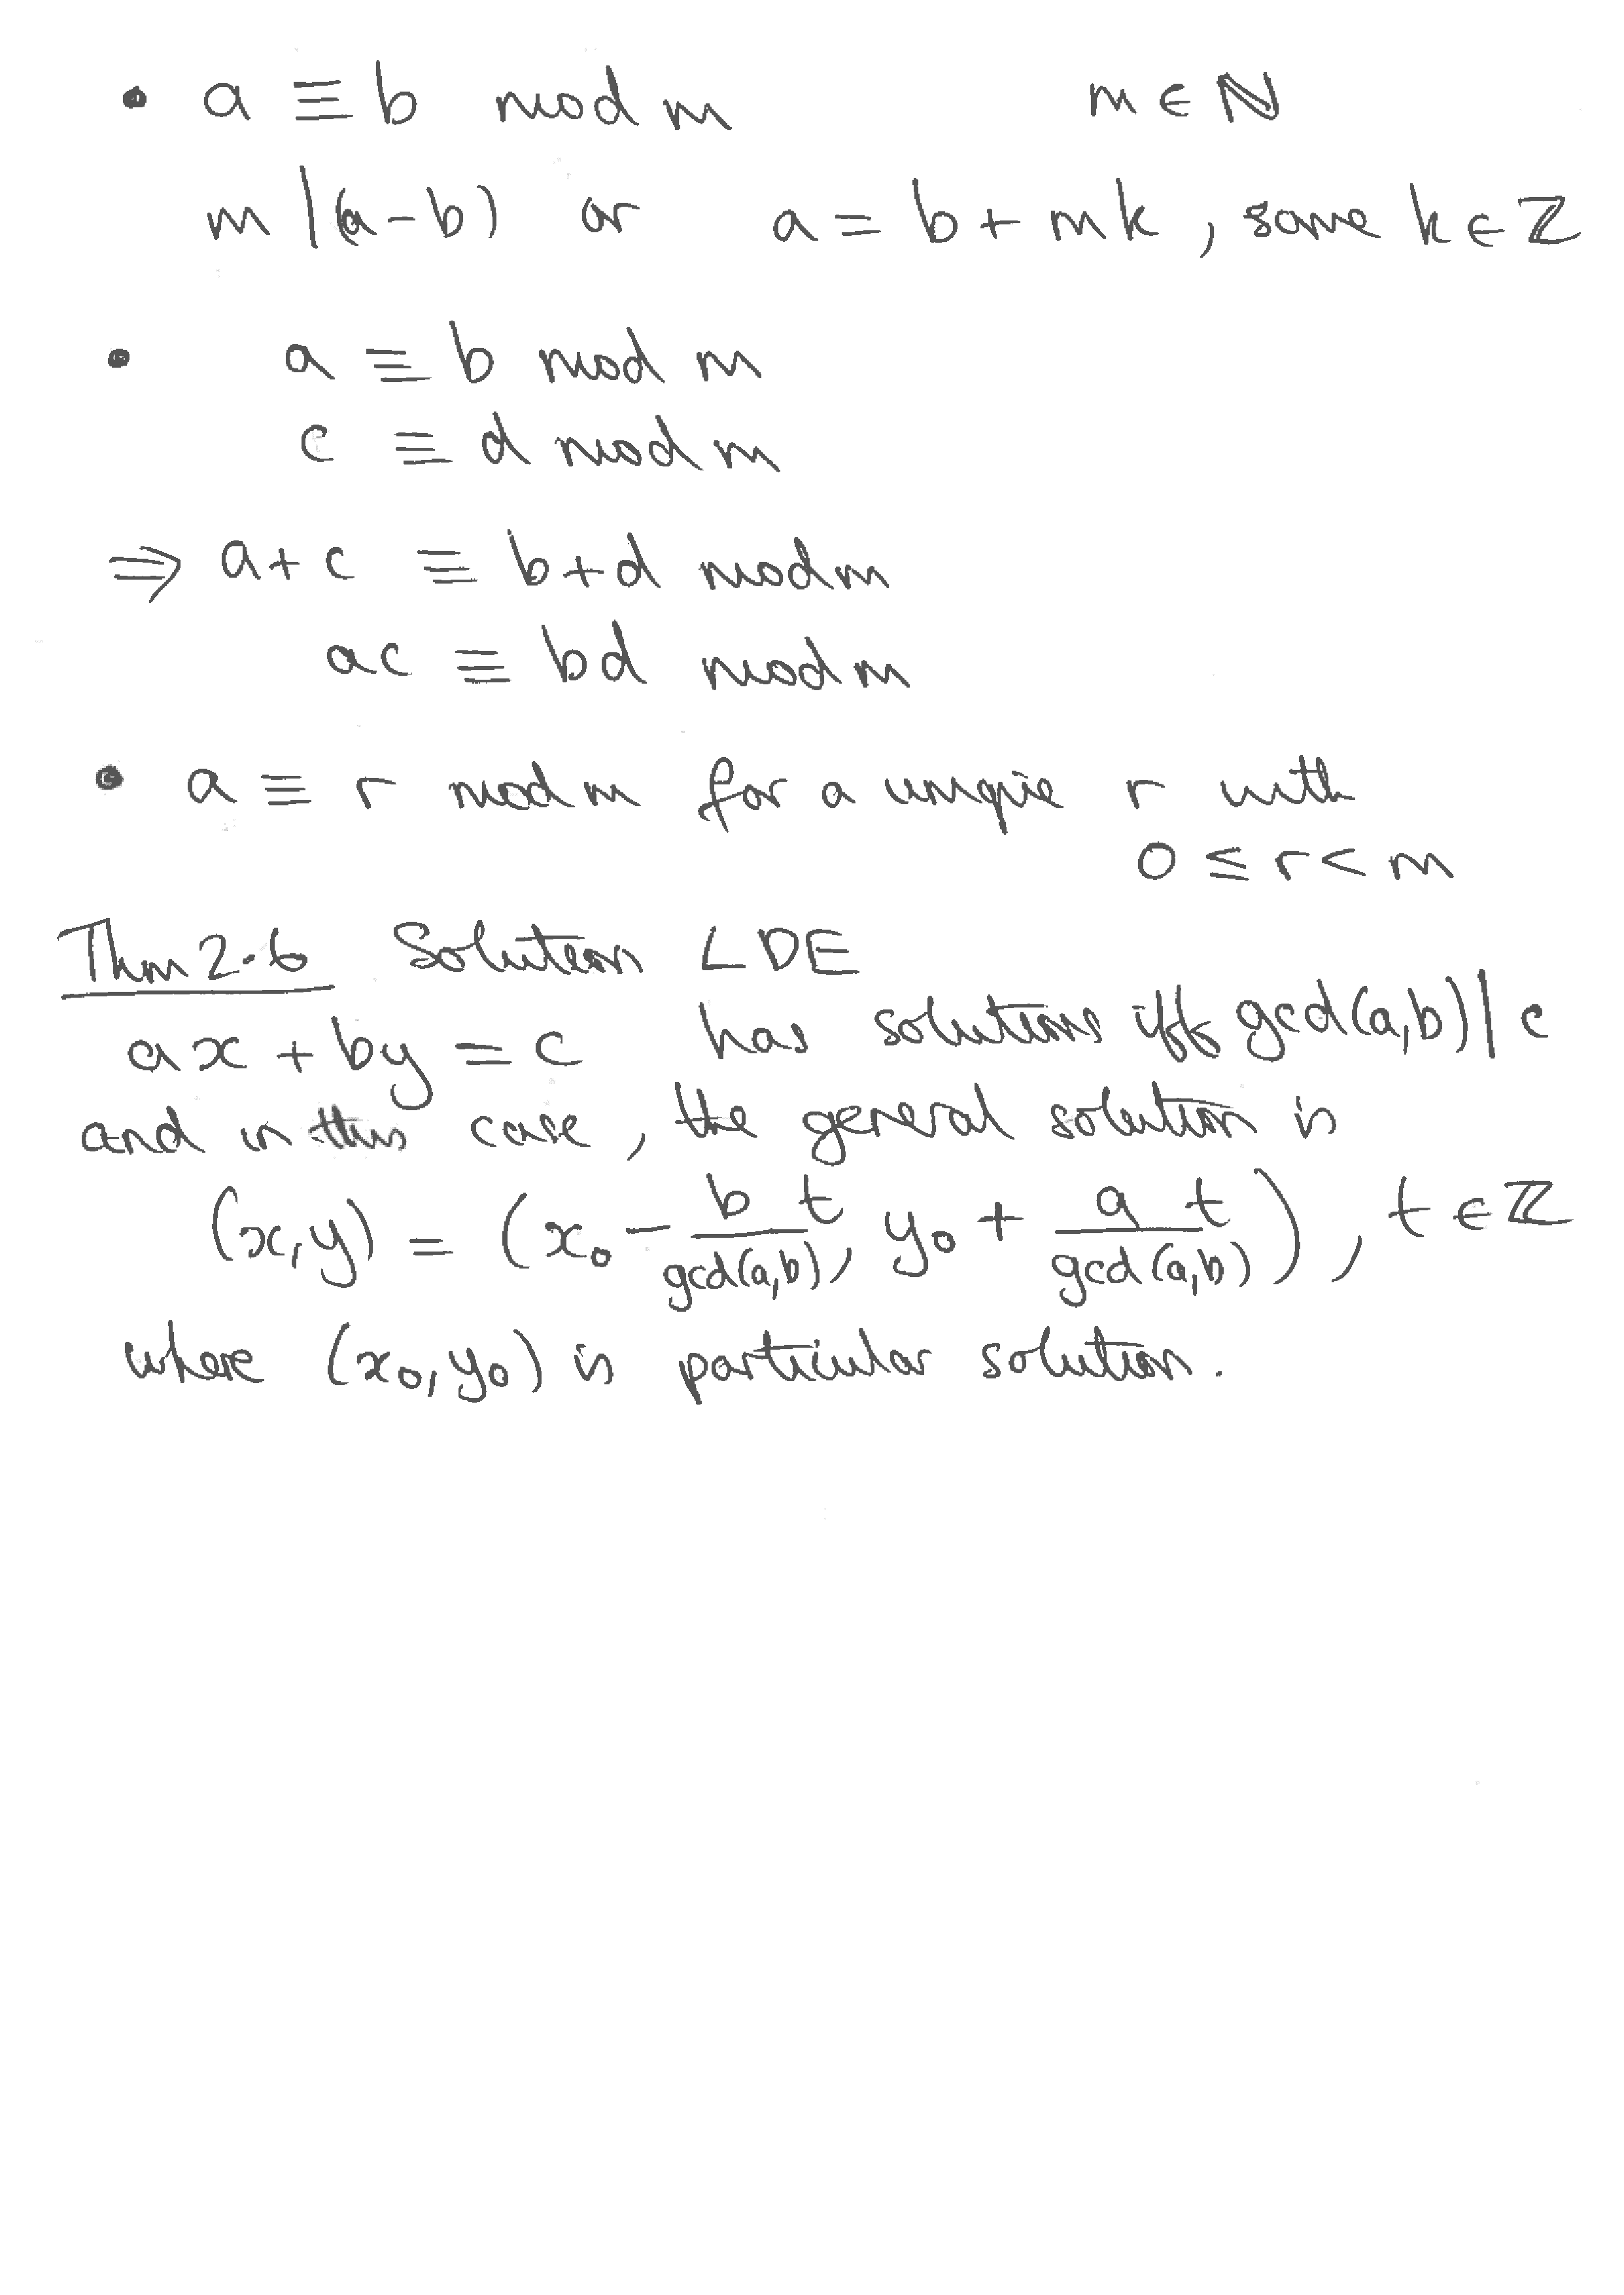 • a ≡ b mod m m ∈ ℕ
m | (a-b) or a = b + mk, some k ∈ ℤ
• a ≡ b mod m
c ≡ d mod m
⇒ a + c ≡ b + d mod m
ac ≡ bd mod m
• a ≡ r mod m for a unique r with
0 ≤ r < m
Thm 2.6 Solution LDE
ax + by = c has solutions iff gcd(a,b) | c
and in this case, the general solution is
(x,y) = (x₀ - b/gcd(a,b) t, y₀ + a/gcd(a,b) t), t ∈ ℤ
where (x₀,y₀) is particular solution.